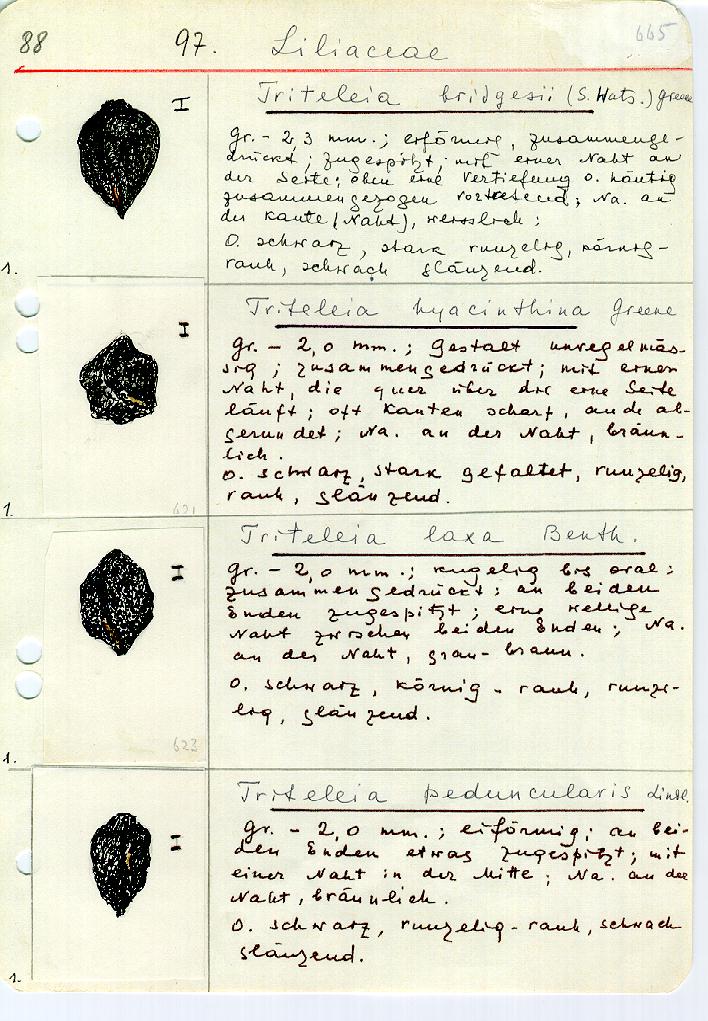 88 97. Liliaceae 665
Triteleia bridgesii (S. Wats.) Greene
gr. - 2,3 mm.; eiförmig, zusammenge-
drückt; zugespitzt; mit einer Naht an
der Seite; oben eine Vertiefung o. häutig
zusammengezogen vortretend; Na. an
der Kante (Naht), weisslich;
O. schwarz, stark runzelig, körnig-
rauh, schwach glänzend.
1.
Triteleia hyacinthina Greene
gr. - 2,0 mm.; Gestalt unregelmäs-
sig; zusammengedrückt; mit einer
Naht, die quer über die eine Seite
läuft; oft Kanten scharf, ande ab-
gerundet; Na. an der Naht, bräun-
lich.
O. schwarz, stark gefaltet, runzelig,
rauh, glänzend.
1. 621
Triteleia laxa Benth.
gr. - 2,0 mm.; kugelig bis oval;
zusammengedrückt; an beiden
Enden zugespitzt; eine wellige
Naht zwischen beiden Enden; Na.
an der Naht, grau-braun.
O. schwarz, körnig-rauh, runze-
lig, glänzend.
623
1.
Triteleia peduncularis Lindl.
gr. - 2,0 mm.; eiförmig; an bei-
den Enden etwas zugespitzt; mit
einer Naht in der Mitte; Na. an der
Naht, bräunlich.
O. schwarz, runzelig-rauh, schwach
glänzend.
1.